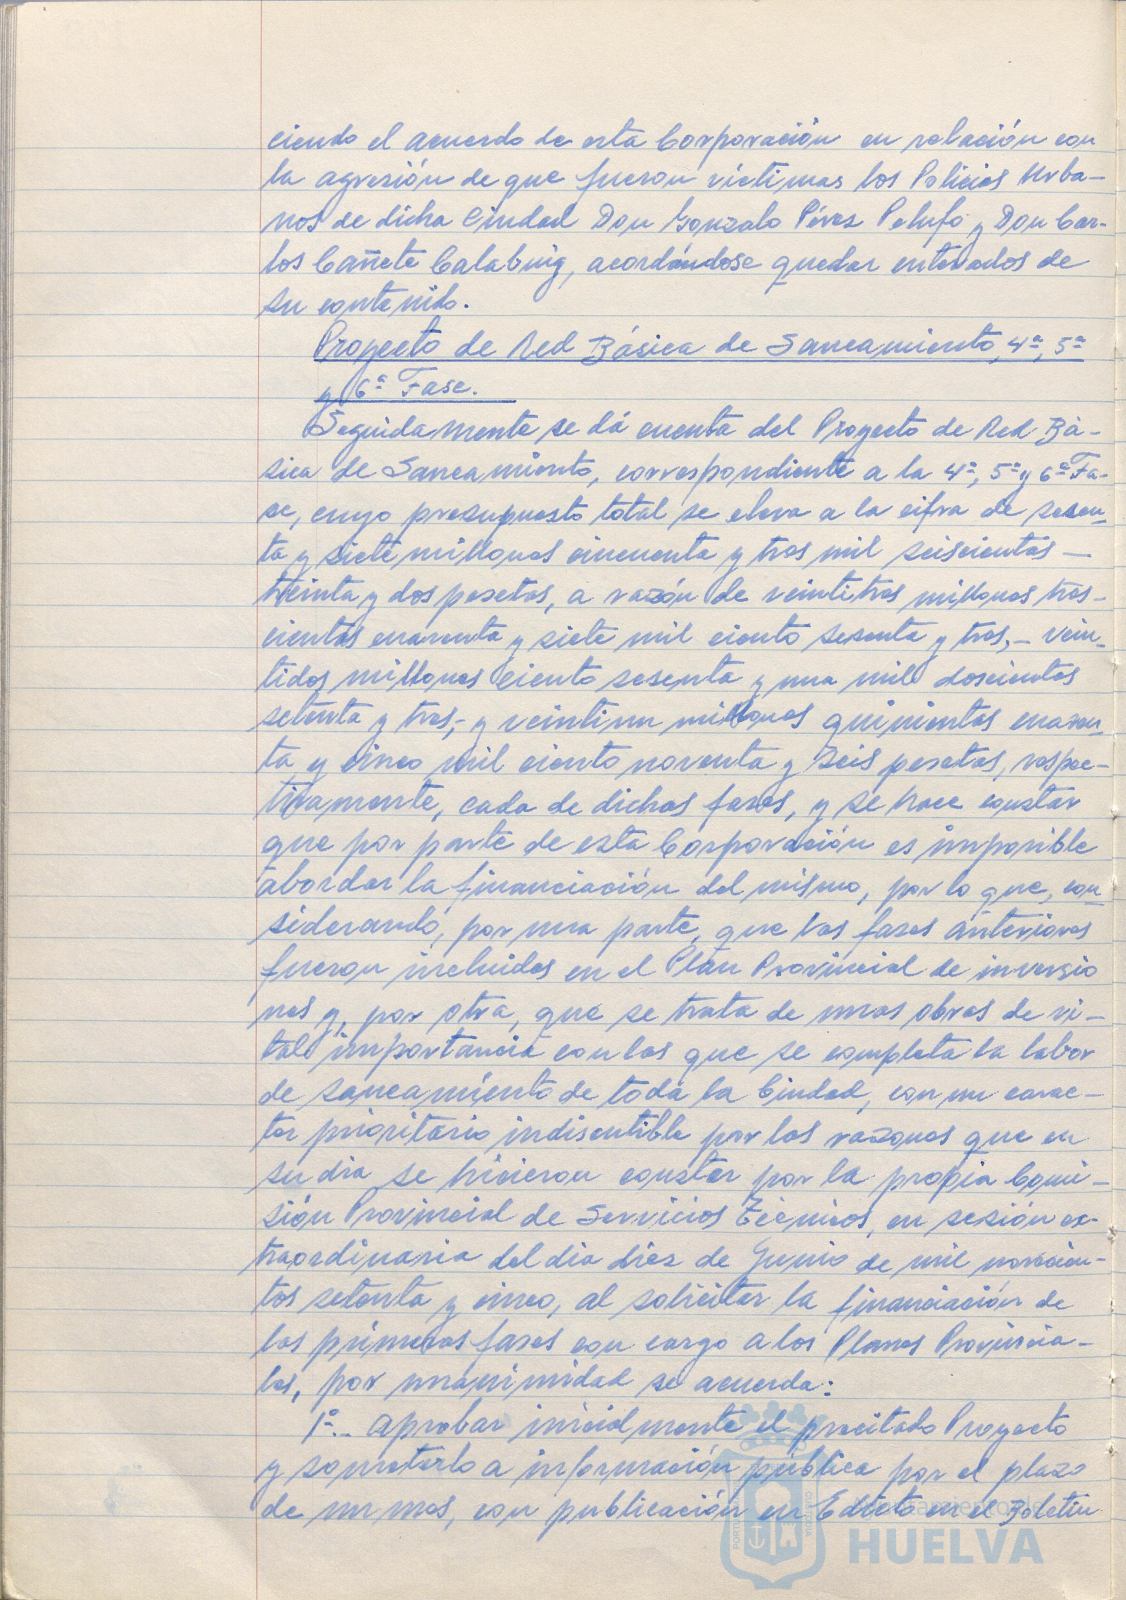 ciendo el acuerdo de esta Corporación en relación con
la agresión de que fueron víctimas los Policias Urba-
nos de dicha Ciudad Don Gonzalo Pérez Pelufo y Don Car-
los Cañete Calabuig, acordándose quedar enterados de
su contenido.
Proyecto de Red Básica de Saneamiento, 4ª, 5ª
y 6ª Fase.
Seguidamente se dá cuenta del Proyecto de Red Bá-
sica de Saneamiento, correspondiente a la 4ª, 5ª y 6ª Fa-
se, cuyo presupuesto total se eleva a la cifra de sesen-
ta y siete millones cincuenta y tres mil seiscientas —
treinta y dos pesetas, a razón de veintitres millones tres-
cientas cuarenta y siete mil ciento sesenta y tres,- vein-
tidos millones ciento sesenta y una mil doscientas
setenta y tres,- y veintiun millones quinientas cuaren-
ta y cinco mil ciento noventa y seis pesetas, respec-
tivamente, cada de dichas fases, y se hace constar
que por parte de esta Corporación es imposible
abordar la financiación del mismo, por lo que, con
siderando, por una parte, que las fases anteriores
fueron incluidas en el Plan Provincial de inversio
nes y, por otra, que se trata de unas obras de vi-
tal importancia con las que se completa la labor
de saneamiento de toda la Ciudad, con un carac-
ter prioritario indiscutible por las razones que en
su dia se hicieron constar por la propia Comi-
sión Provincial de Servicios Técnicos, en sesión ex-
traordinaria del dia diez de Junio de mil novecien-
tos setenta y cinco, al solicitar la financiación de
las primeras fases con cargo a los Planes Provincia-
les, por unanimidad se acuerda:
1º.- Aprobar inicialmente el precitado Proyecto
y someterlo a información pública por el plazo
de un mes, con publicación en Edicto en el Boletin
Ayuntamiento de
HUELVA